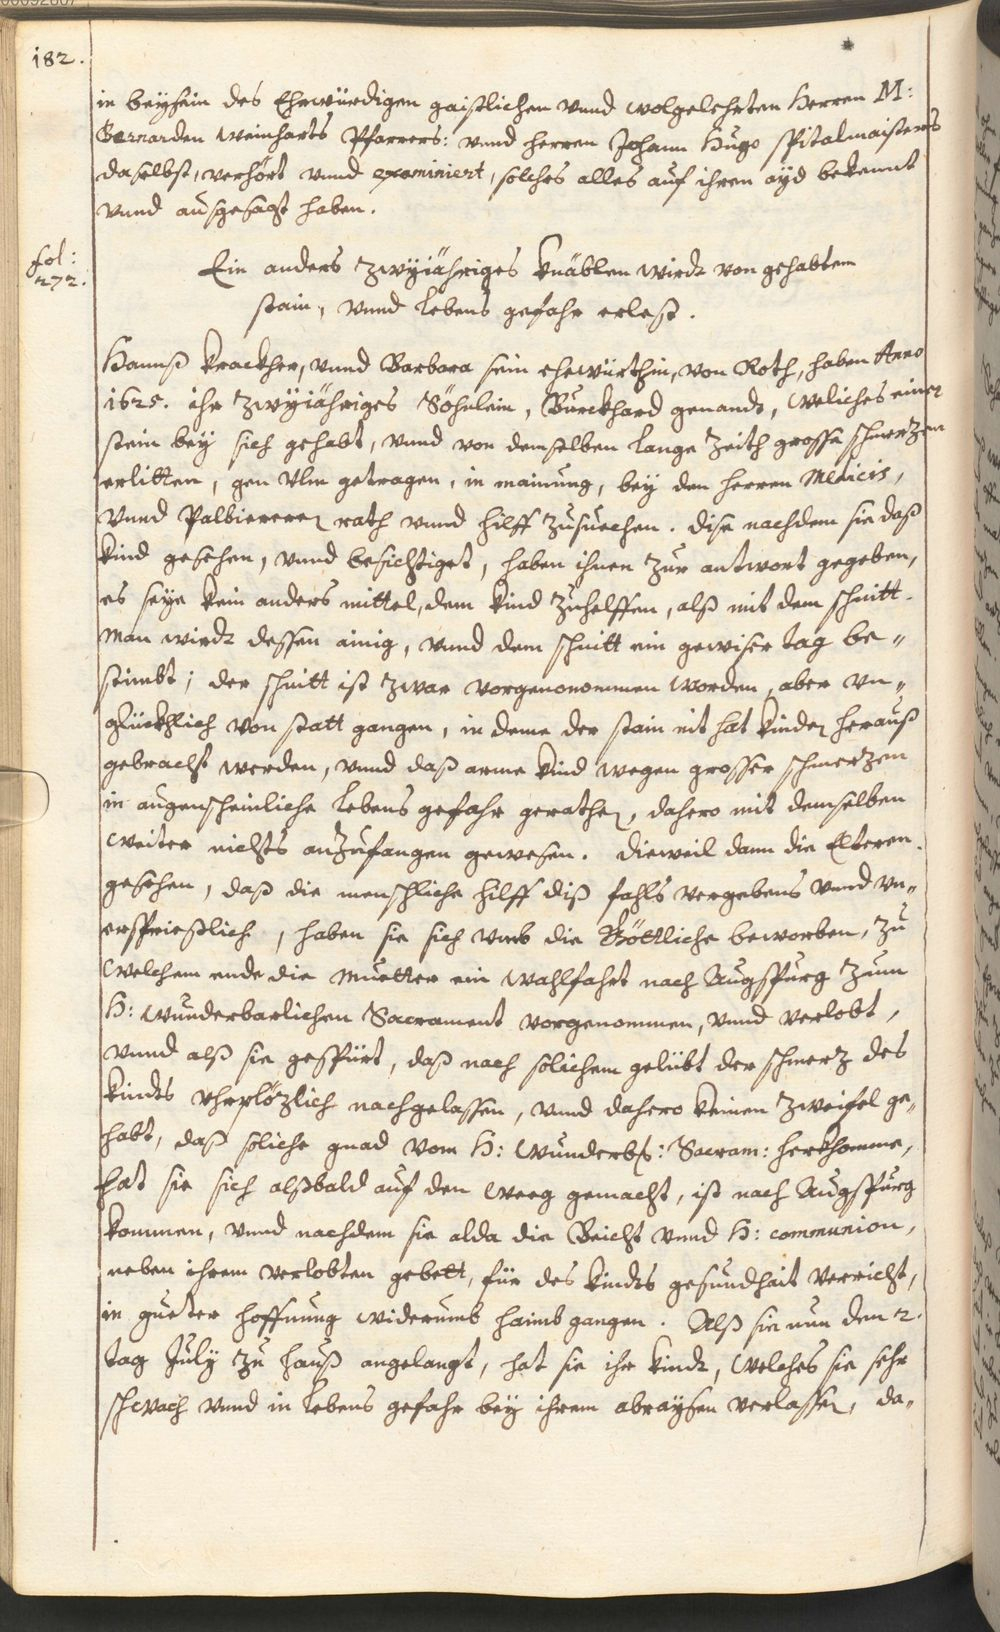 182.
in beysein des Ehrwürdigen gaistlichen vnnd wolgelehrten Herren M:
Bernarden Weinharts Pfarrers: vnnd herren Johann Hugo spitalmaisters
daselbst, verhört vnnd examiniert, solches alles auf ihren ayd bekennt
vnnd ausgesagt haben.
fol:
272.
Ein anders zwyjähriges knäblen wirdt von gehabtem
stain, vnnd lebens gefahr erlest.
Hannß krackher, vnnd Barbara sein ehewürthin, von Roth, haben Anno
1625. ihr zwyjähriges Söhnlein, Burckhard genandt, weliches einen
stein bey sich gehabt, vnnd von demselben lange zeith grosse schmerzen
erlitten, gen Vlm getragen, in mainung, bey den herren Medicis,
vnnd Palbieren rath vnnd hilff zusuechen. dise nachdem sie daß
kind gesehen, vnnd besichtiget, haben ihnen zur antwort gegeben,
es seye kein anders mittel, dem kind zuhelffen, alß mit dem schnitt.
Man wirdt dessen ainig, vnnd dem schnitt ein gewiser tag be„
stimbt; der schnitt ist zwar vorgenonommen worden, aber vn„
glückhlich von statt gangen, in deme der stain nit hat kinden herauß
gebracht werden, vnnd daß arme kind wegen grosser schmerzen
in augenscheinliche lebens gefahr gerathen, dahero mit demselben
weiter nichts anzufangen gewesen. dieweil dann die Elteren
gesehen, daß die menschliche hilff diß fahls vergebens vnnd vn„
ersprießlich, haben sie sich vmb die Göttliche beworben, zu
welchem ende die muetter ein wahlfahrt nach Augspurg zum
H: wunderbarlichen Sacrament vorgenommen, vnnd verlobt,
vnnd alß sie gespürt, daß nach solichem gelübt der schmerz des
kindts vhrplözlich nachgelassen, vnnd dahero keinen zweifel ge„
habt, daß soliche gnad vom H: Wunderb: Sacram: herkhomme,
hat sie sich alßbald auf den weeg gemacht, ist nach Augspurg
kommen, vnnd nachdem sie alda die Beicht vnnd H: communion,
neben ihrem verlobten gebett, für des kindts gesundhait verricht,
in gueter hoffnung widerumb haimb gangen. Alß sie nun den 2.
tag July zu hauß angelangt, hat sie ihr kindt, welches sie sehr
schwach vnnd in lebens gefahr bey ihrem abraysen verlassen, da„